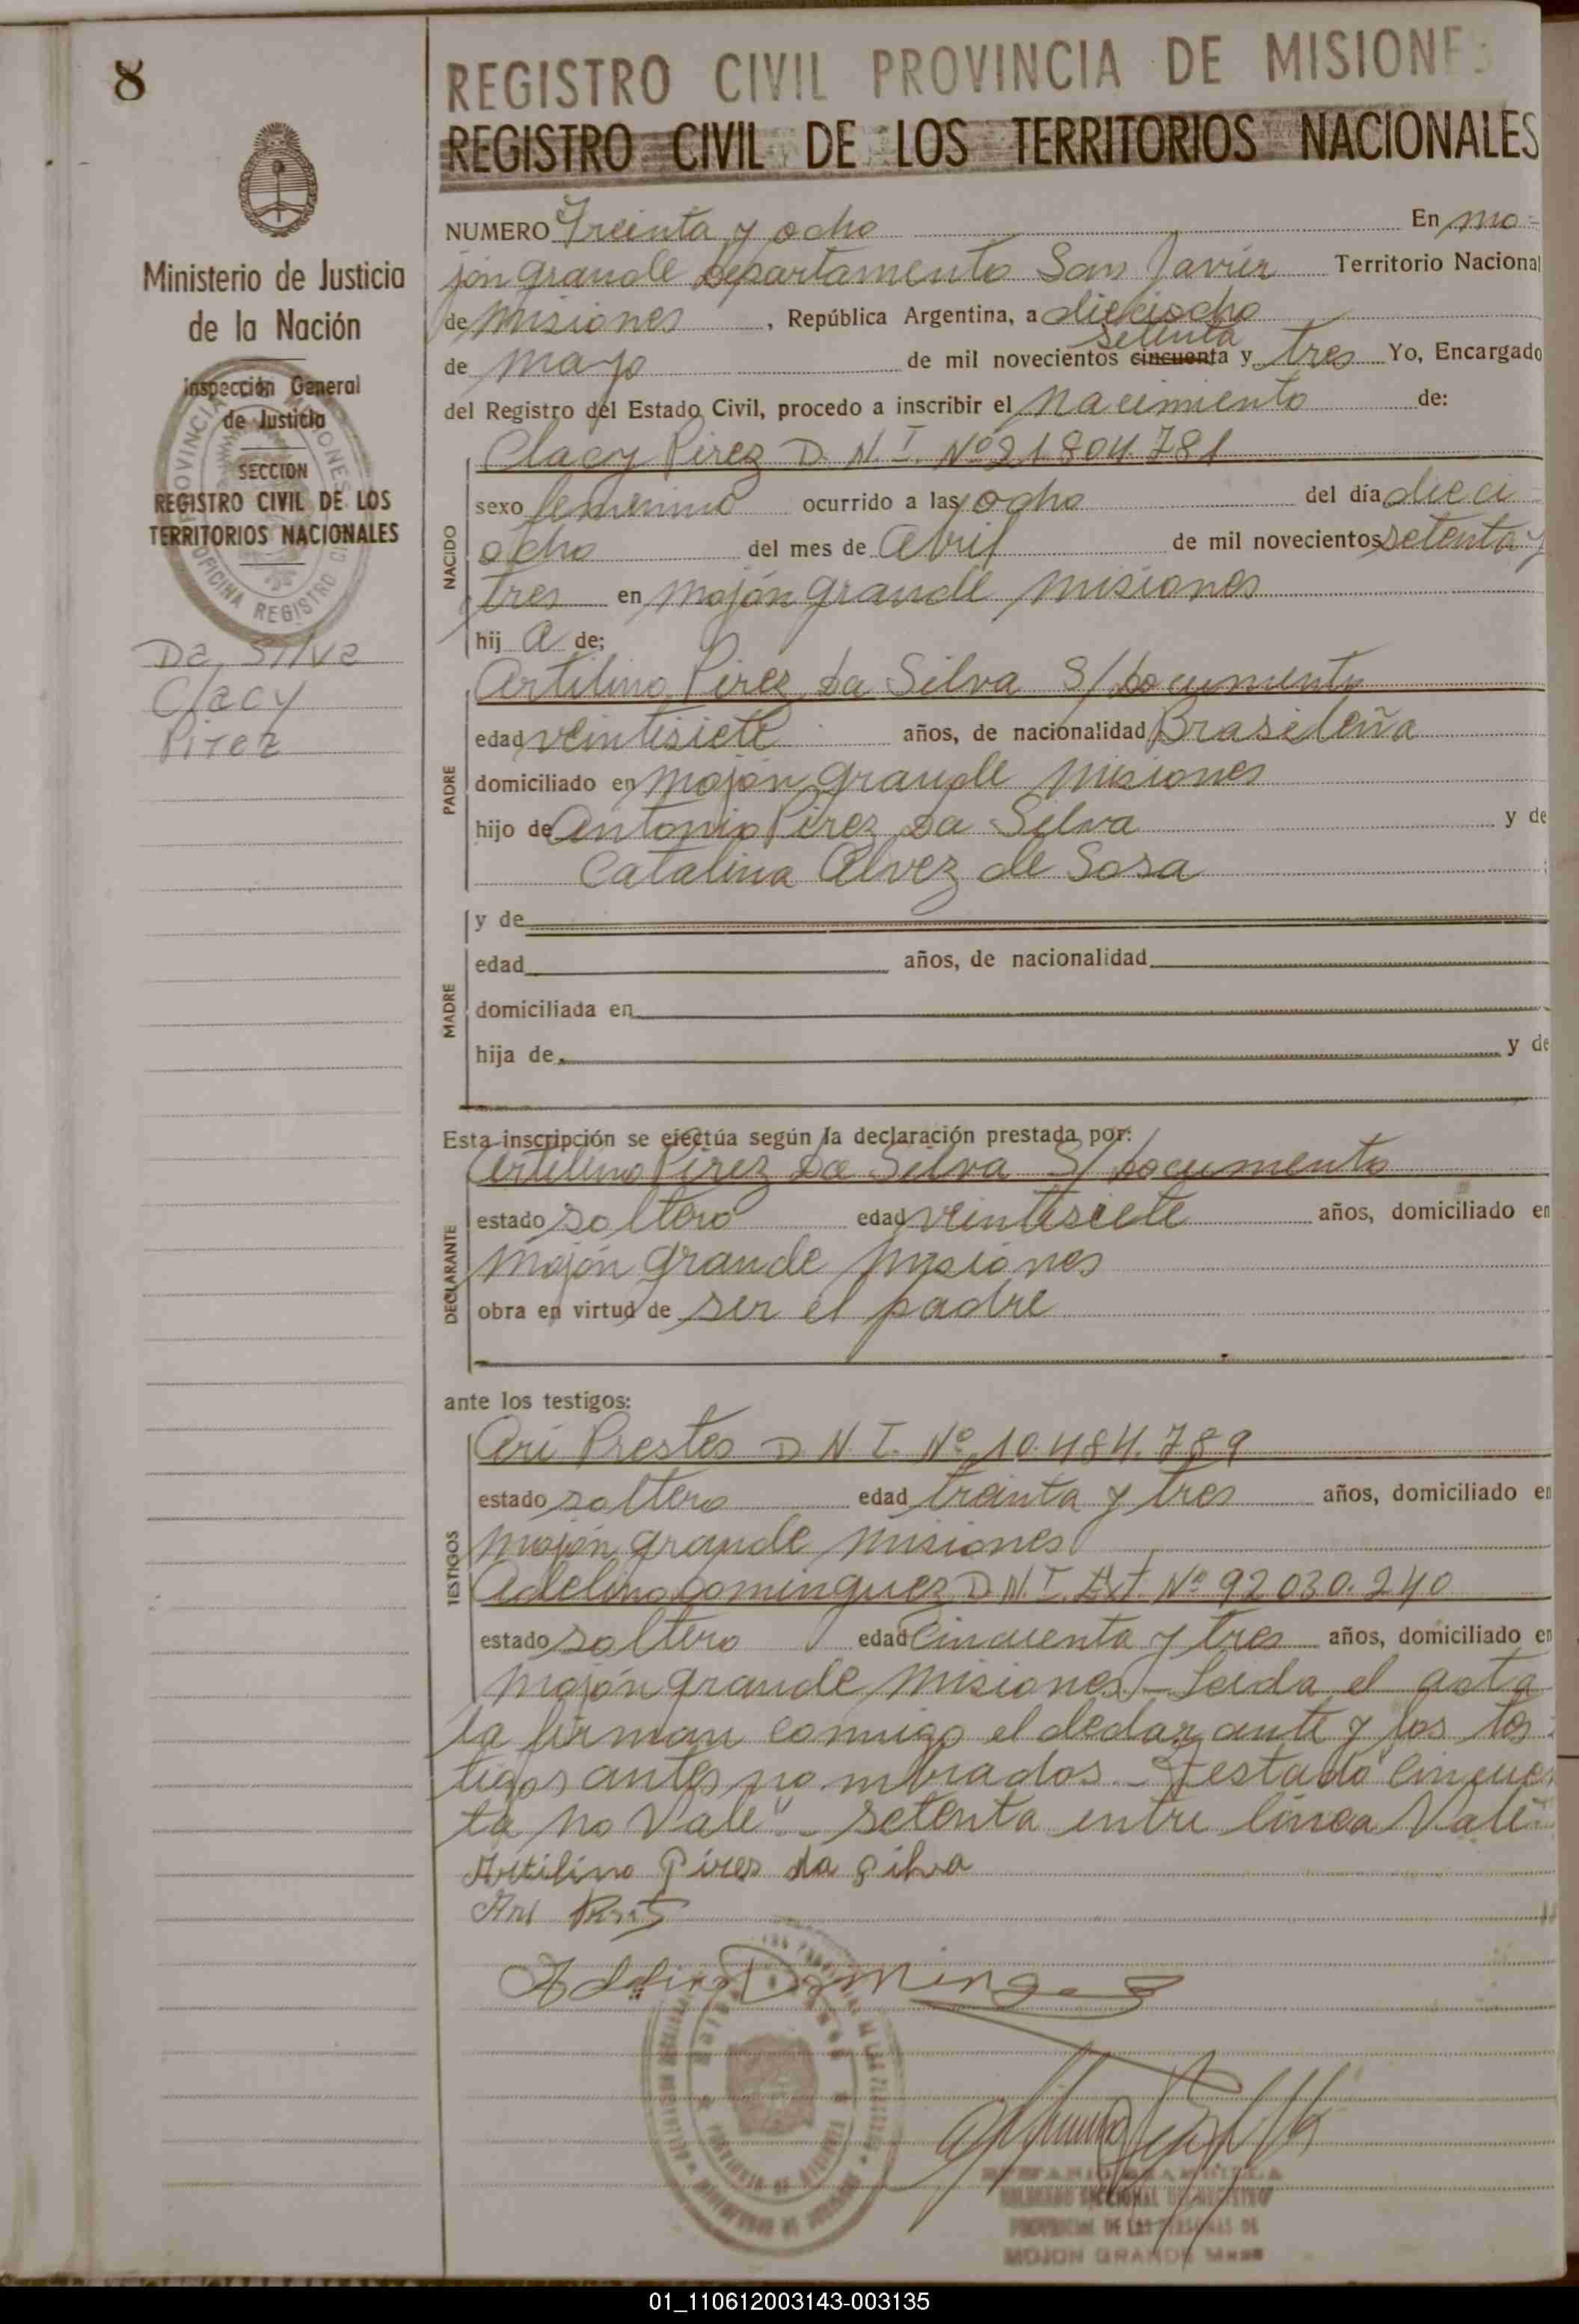 8
REGISTRO CIVIL PROVINCIA DE MISIONES
REGISTRO CIVIL DE LOS TERRITORIOS NACIONALES
Ministerio de Justicia
de la Nación
Inspección General
de Justicia
SECCION
REGISTRO CIVIL DE LOS
TERRITORIOS NACIONALES
PROVINCIA MISIONES
OFICINA REGISTRO CI
Da Silva
Clacy
Pirez
NUMERO Treinta y ocho En mo=
jón grande Departamento San Javier Territorio Nacional
de Misiones, República Argentina, a dieciocho
setenta
de mayo de mil novecientos cincuenta y tres Yo, Encargado
del Registro del Estado Civil, procedo a inscribir el nacimiento de:
Clacy Pirez D. N. I. Nº 21.804.781
NACIDO
sexo femenino ocurrido a las ocho del día dieci=
ocho del mes de Abril de mil novecientos setenta y
tres en mojón grande misiones
hij a de:
PADRE
Artilino Pirez Da Silva S/Documento
edad veintisiete años, de nacionalidad Brasileña
domiciliado en mojón grande misiones
hijo de Antonio Pirez Da Silva y de
Catalina Alvez de Sosa
MADRE
y de
edad años, de nacionalidad
domiciliada en
hija de y de
Esta inscripción se efectúa según la declaración prestada por:
DECLARANTE
Artilino Pirez Da Silva S/Documento
estado soltero edad veintisiete años, domiciliado en
mojón grande misiones
obra en virtud de ser el padre
ante los testigos:
TESTIGOS
Ari Prestes D N I. Nº 10.484.789
estado soltero edad treinta y tres años, domiciliado en
mojón grande misiones
Adelino Dominguez D. N. I. Ext. Nº 92.030.240
estado soltero edad cincuenta y tres años, domiciliado en
mojón grande misiones – Leida el acta
la firman conmigo el declarante y los tes=
tigos antes nombrados. – Testado "cincuen
ta no Vale" – setenta entre línea Vale –
Artilino Pires da silva
Ari
Adelino Dominguez
DE LAS PERSONAS
PROVINCIAL DE LAS PERSONAS DE
MOJON GRANDE Mnes
01_110612003143-003135